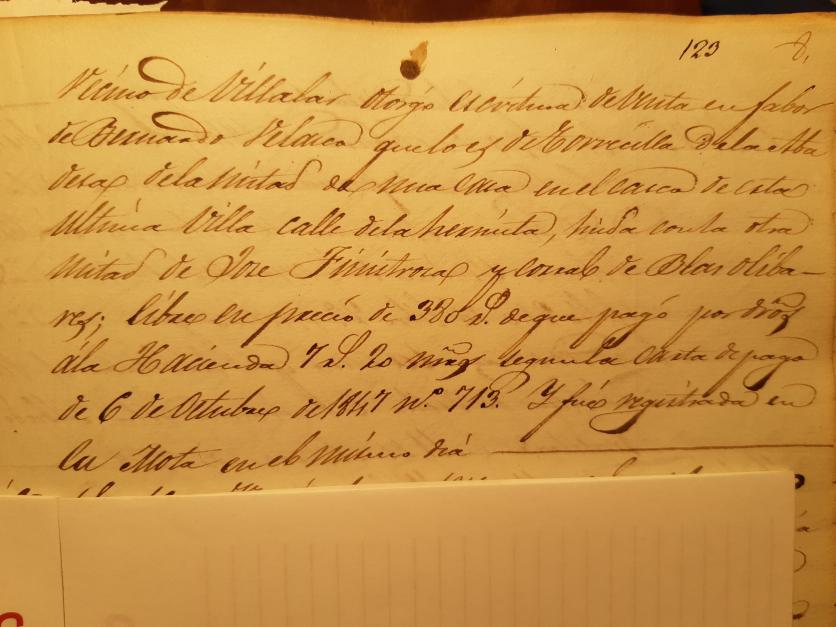 123 8,
Vecino de Villalar otorgó escritura de venta en fabor
de Bernardo Velasco que lo es de Torrecilla de la Aba
desa de la mitad de una casa en el casco de esta
ultima Villa calle de la hermita, linda con la otra
mitad de Jose Finistrosa y corral de Blas Oliba-
res; libre en precio de 380 r. de que pagó por dr̃os
á la Hacienda 7 r. 20 mr̃s segun la carta de pago
de 6 de Octubre de 1847 nº. 713. Y fué registrada en
La Mota en el mismo dia